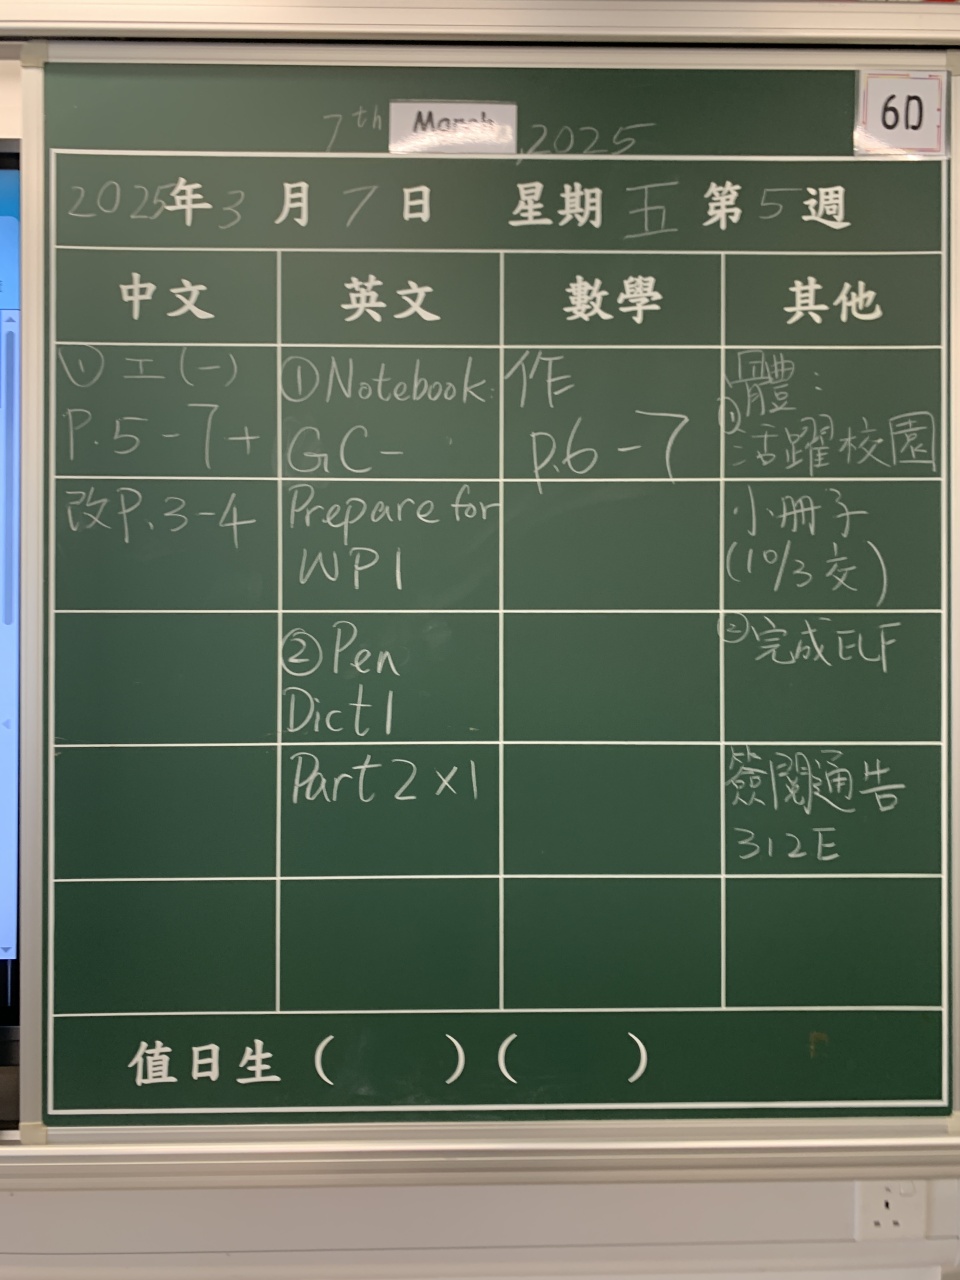 6D
7th March, 2025
2025年3月7日 星期五 第5週
中文 英文 數學 其他
① 工(一)
P.5-7+
改P.3-4
① Notebook:
GC-
Prepare for
WP1
② Pen
Dict1
Part 2 x1
作
p.6-7
體:
① 活躍校園
小冊子
(10/3交)
② 完成ELF
簽閱通告
312E
值日生 ( ) ( )